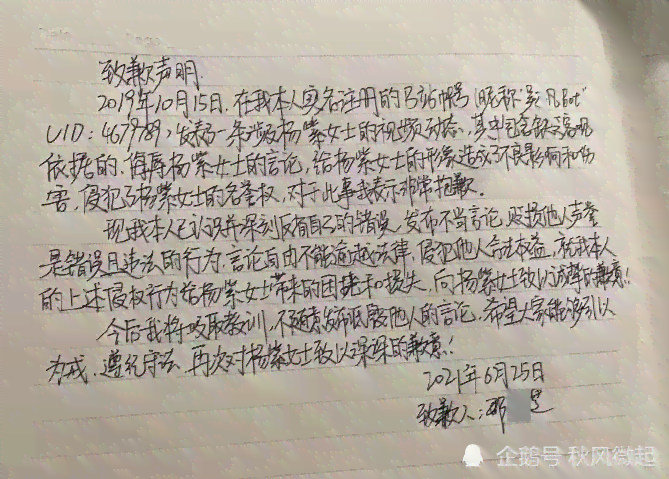 致歉声明
2019年10月15日,在我本人实名注册的B站帐号(昵称"吴 凡Bot"
UID:4679789,发表一条涉及杨紫女士的视频动态,其中包含缺乏客观
依据的、侮辱杨紫女士的言论,给杨紫女士的形象造成了不良影响和伤
害,侵犯了杨紫女士的名誉权,对于此事我表示非常抱歉。
现我本人已认识并深刻反省自己的错误,发布不当言论,贬损他人声誉
是错误且违法的行为,言论自由不能逾越法律,侵犯他人合法权益,就我本人
的上述侵权行为给杨紫女士带来的困扰和损失,向杨紫女士致以诚挚的歉意!
今后我将吸取教训,不随意发布低毁他人的言论,希望大家能够引以
为戒,遵纪守法,再次对杨紫女士致以深深的歉意!
2021年6月25日
致歉人:邓
企鹅号 秋风微起